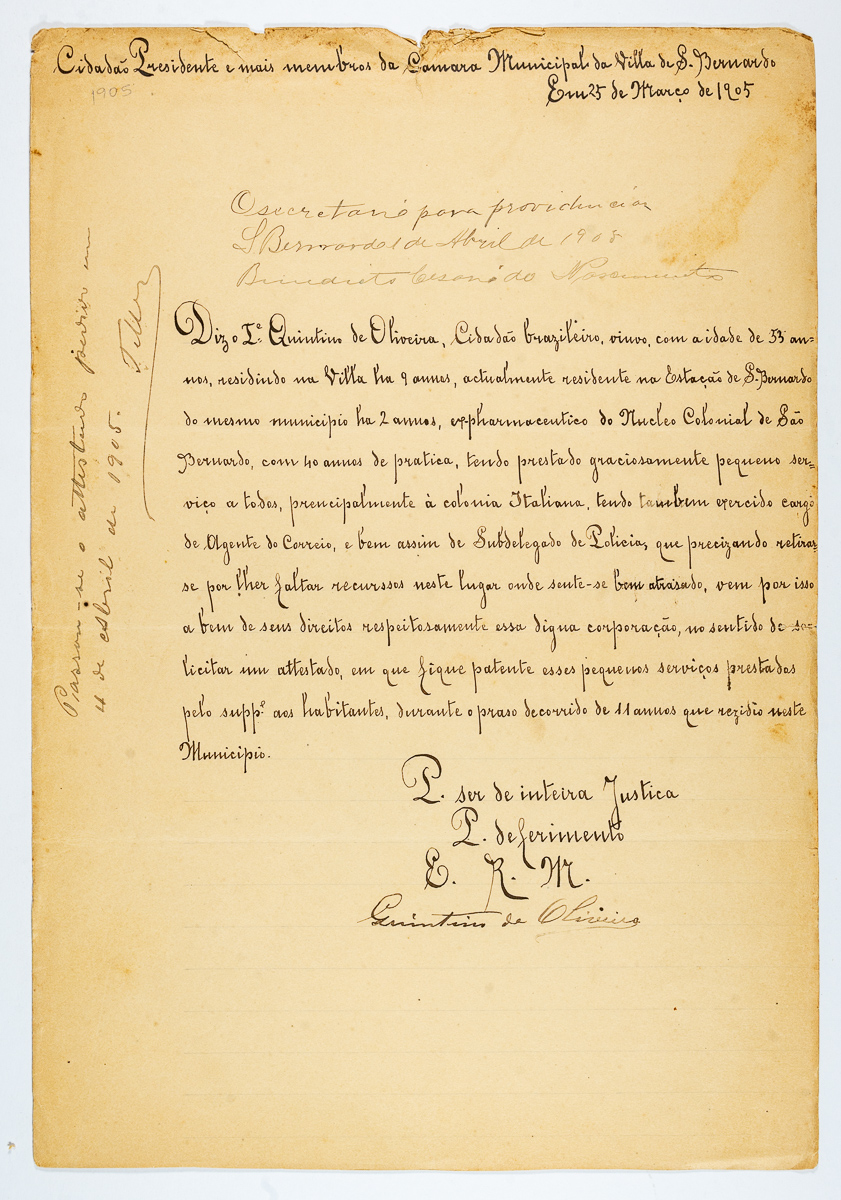 Cidadão Presidente e mais membros da Camara Municipal da Villa de S. Bernardo
Em 25 de Março de 1905
1905
O secretario para providenciar
S Bernardo 1 de Abril de 1905
Benedicto Cesario do Nascimento
Diz o Tᵉ. Quintino de Oliveira, Cidadão brazileiro, viuvo, com a idade de 53 an-
nos, residindo na Villa ha 9 annos, actualmente residente na Estação de S. Bernardo
do mesmo municipio ha 2 annos, ex-pharmaceutico do Nucleo Colonial de São
Bernardo, com 40 annos de pratica, tendo prestado graciosamente pequeno ser-
viço a todos, prencipalmente à colonia Italiana, tendo tambem exercido cargo
de Agente do Correio, e bem assim de Subdelegado de Policia, que precizando retirar-
se por lher faltar recurssos neste lugar onde sente-se bem atrasado, vem por isso
a bem de seus direitos respeitosamente essa digna corporação, no sentido de so-
licitar um attestado, em que fique patente esses pequenos serviços prestados
pelo suppᵉ. aos habitantes, durante o praso decorrido de 11 annos que rezidio neste
Municipio.
P. ser de inteira Justica
P. deferimento
E. R. M.
Quintino de Oliveira
Passou-se o attestado pedido em
4 de abril de 1905.